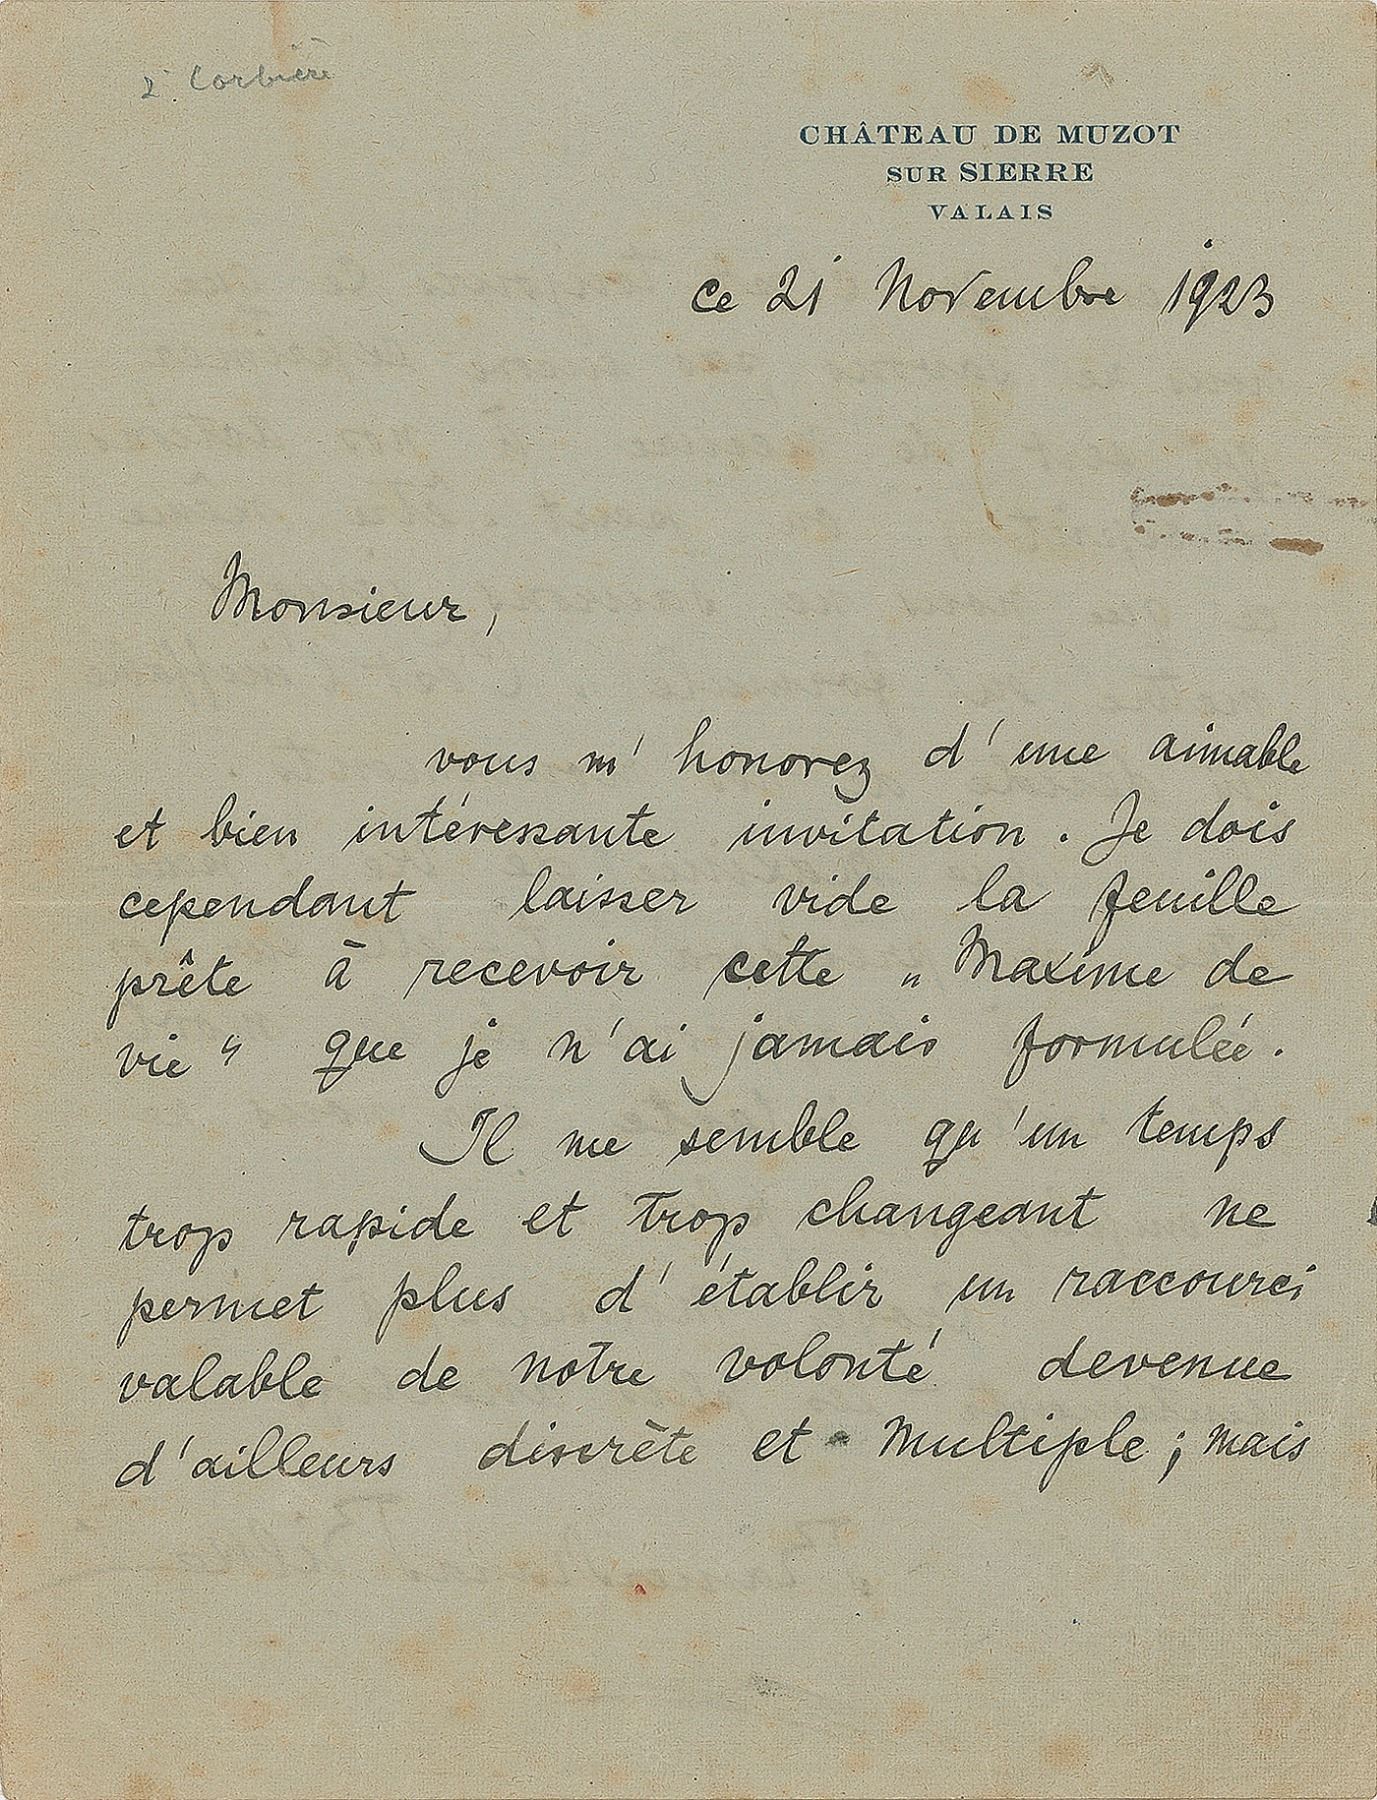 CHÂTEAU DE MUZOT
SUR SIERRE
VALAIS
ce 21 Novembre 1923
Monsieur,
vous m'honorez d'une aimable
et bien intéressante invitation. Je dois
cependant laisser vide la feuille
prête à recevoir cette „Maxime de
vie“ que je n'ai jamais formulée.
Il me semble qu'un temps
trop rapide et trop changeant ne
permet plus d'établir un raccourci
valable de notre volonté devenue
d'ailleurs discrète et multiple; mais